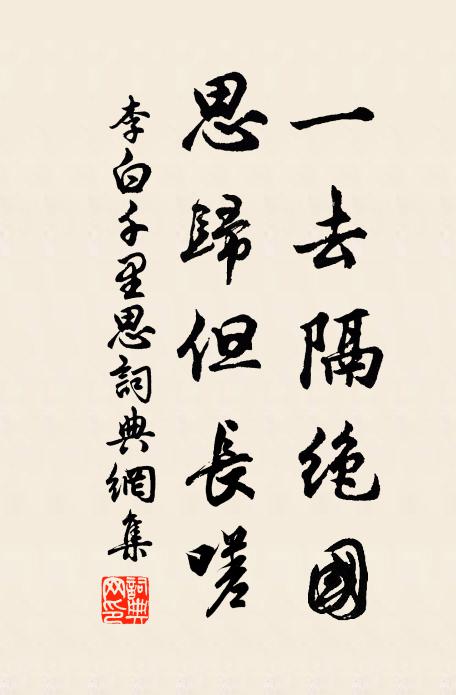 一去隔绝國
思歸但長嗟
李白千里思詞典網集
詞典網印